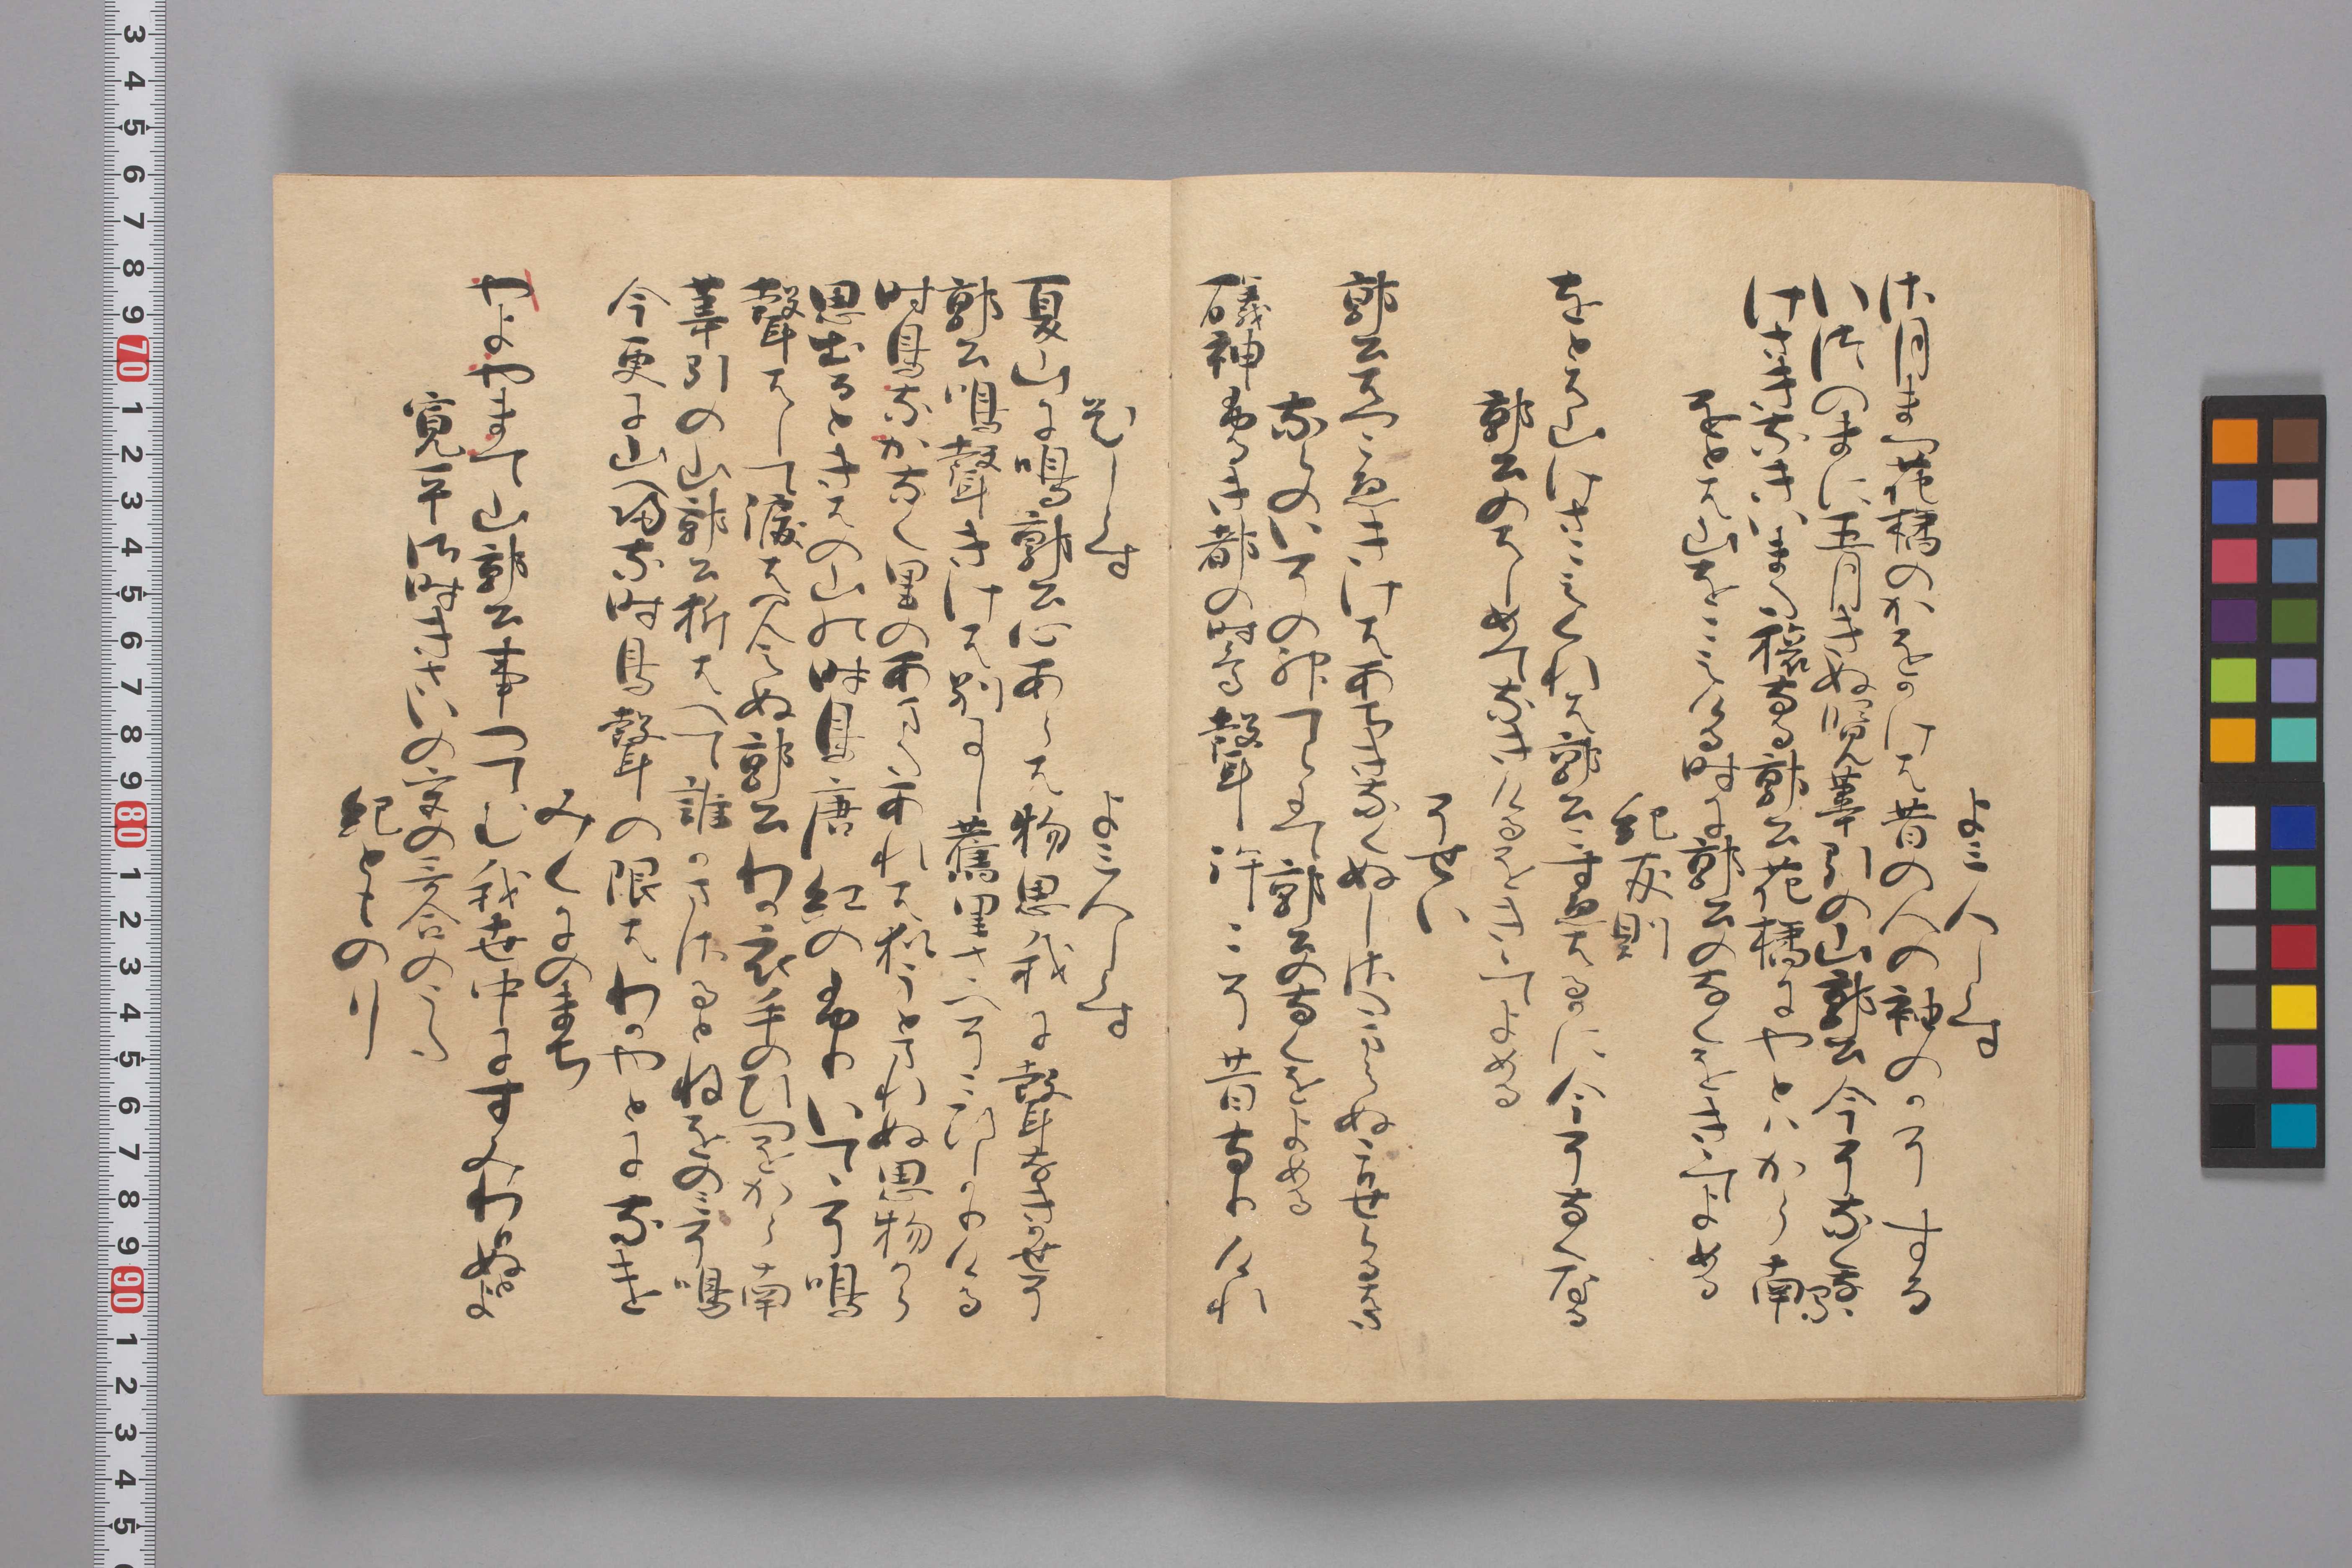 よみ人しらす
さ月まつ花橘のかをかけは昔の人の袖のかそする
いつのまに五月きぬ覧葦引の山郭公今そなくなる
けさきなきいまた旅なる郭公花橘にやとはから南
をとは山をこえける時に郭公のなくをきゝてよめる
紀友則
をとは山けさこえくれは郭公こすゑはるかに今そなくなる
郭公のはしめてなきけるをきゝてよめる
そせい
郭公はつこゑきけはあちきなくぬしさたまらぬこひせらるはた
ならのいその神てらにて郭公のなくをよめる
礒神ふるき都の時鳥聲許こそ昔なりけれ
題しらす　よみ人しらす
夏山に鳴郭公心あらは物思我に聲なきかせそ
郭公鳴聲きけは別にし舊里さへそこひしかりける
時鳥なかなく里のあまたあれは猶うとまれぬ思物から
思出るときはの山の時鳥唐紅のふりいてゝそ鳴
聲はして涙は見えぬ郭公わか衣手のひつをから南
葦引の山郭公折はへて誰かまさるとねをのみそ鳴
今更に山へ帰な時鳥聲の限はわかやとになけ
みくにのまち
やよやまて山郭公事つてむ我世中にすみわひぬとよ
寛平御時きさいの宮の哥合のうた
紀とものり